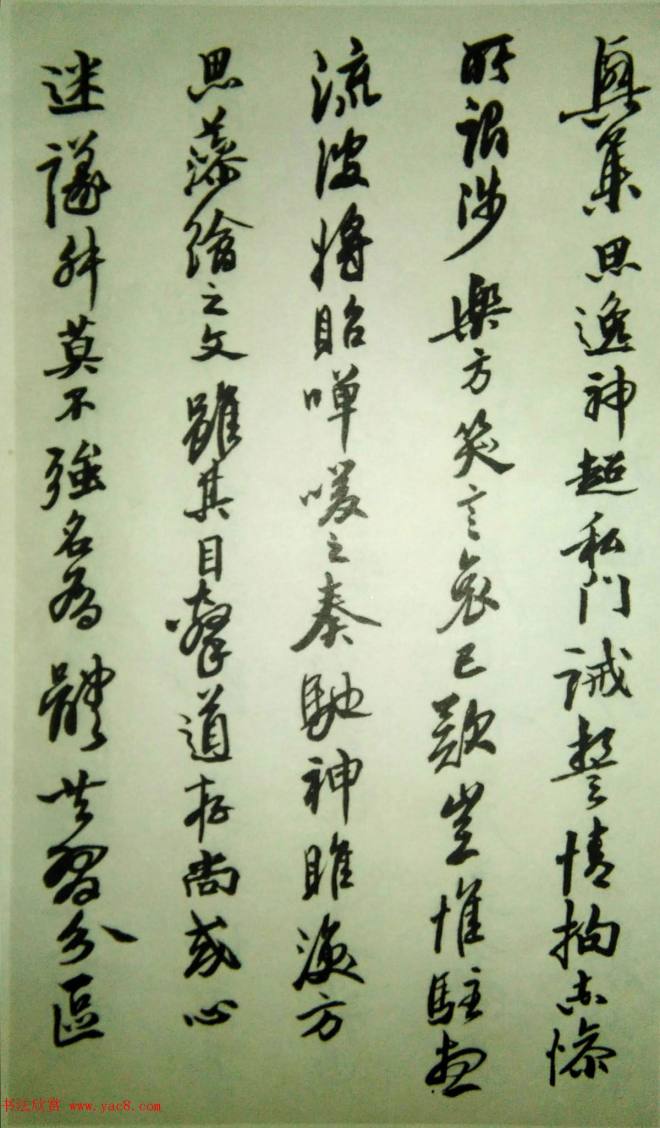 興集思逸神超私門誡誓情拘志惨
所謂涉樂方笑言哀已歎豈惟駐想
流波將貽嘽喛之奏馳神睢渙方
思藻繪之文雖其目擊道存尚或心
迷議舛莫不強名為體共習分區
书法欣赏 www.yac8.com